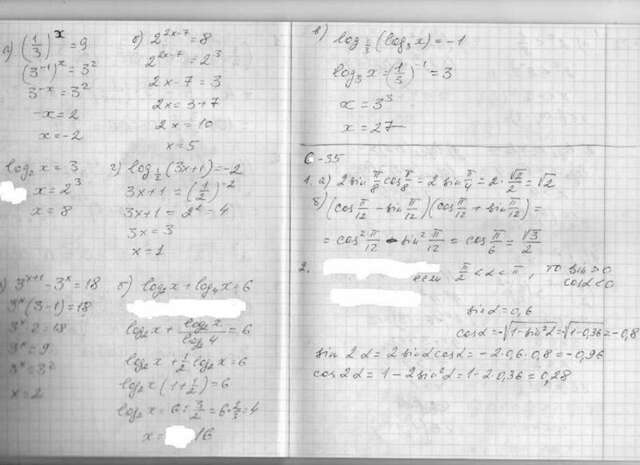 а) (1/3)^x = 9
(3^-1)^x = 3^2
3^-x = 3^2
-x = 2
x = -2
б) 2^2x-7 = 8
2^2x-7 = 2^3
2x-7 = 3
2x = 3+7
2x = 10
x = 5
log₂ x = 3
x = 2^3
x = 8
г) log_1/2 (3x+1) = -2
3x+1 = (1/2)^-2
3x+1 = 2^2 = 4
3x = 3
x = 1
3^x+1 - 3^x = 18
3^x (3-1) = 18
3^x 2 = 18
3^x = 9
3^x = 3^2
x = 2
б) log₂x + log₄x = 6
log₂x + log₂x/log₂4 = 6
log₂x + 1/2 log₂x = 6
log₂x (1+1/2) = 6
log₂x = 6 : 3/2 = 6·2/3 = 4
x = 16
в) log_1/3 (log₃x) = -1
log₃x = (1/3)^-1 = 3
x = 3^3
x = 27
С-35
1. а) 2 sin π/8 cos π/8 = 2 sin π/4 = 2 · √2/2 = √2
б) (cos π/12 - sin π/12)(cos π/12 + sin π/12) =
= cos² π/12 - sin² π/12 = cos π/6 = √3/2
2.
если π/2 < α < π, то sin > 0
cosα < 0
sinα = 0,6
cosα = -√1-sin²α = √1-0,36 = -0,8
sin 2α = 2 sinα cosα = -2·0,6·0,8 = -0,96
cos2α = 1 - 2sin²α = 1-2·0,36 = 0,28